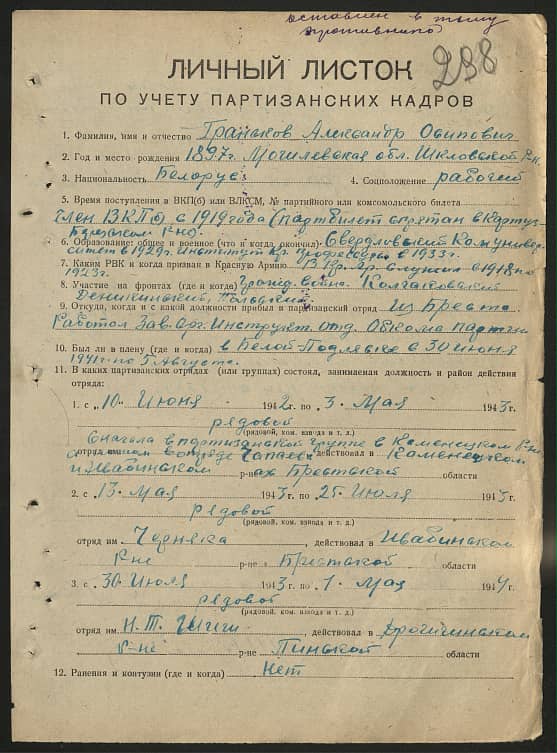 оставлен в тылу
противника
298
ЛИЧНЫЙ ЛИСТОК
ПО УЧЕТУ ПАРТИЗАНСКИХ КАДРОВ
1. Фамилия, имя и отчество Граньков Александр Осипович
2. Год и место рождения 1897г. Могилевская обл. Шкловский р-н.
3. Национальность Белорус 4. Соцположение рабочий
5. Время поступления в ВКП(б) или ВЛКСМ, № партийного или комсомольского билета
член ВКП(б) с 1919 года (партбилет спрятан в Картуз-
Березском р-не).
6. Образование: общее и военное (что и когда окончил) Свердловский Комунивер-
ситет в 1929г. Институт кр. профессуры в 1933г.
7. Каким РВК и когда призван в Красную Армию В Кр. Ар. служил с 1918 по
1923г.
8. Участие на фронтах (где и когда) Гражд. война. Колчаковский
Деникинский, Польский
9. Откуда, когда и с какой должности прибыл в партизанский отряд из Бреста
Работал Зав. Орг. Инструкт. отд. Обкома партии
10. Был ли в плену (где и когда) в Белой-Подляске с 30 июня
1941г. по 5 Августа.
11. В каких партизанских отрядах (или группах) состоял, занимаемая должность и район действия
отряда:
1. с „10“ Июня 1942 г. по 3 Мая 1943 г.
рядовой
(рядовой, ком. взвода и т. д.)
Сначала в партизанской группе в Каменецком р-не,
отряд им Чапаева действовал в Каменецком
и Ивацевичском р-нах Брестской области
2. с „13“ Мая 1943 г. по 25 Июля 1943 г.
рядовой
(рядовой, ком. взвода и т. д.)
отряд им Черняка, действовал в
р-не р-не Брестской области
3. с 30 Июля 1943 г. по 1 Мая 1944 г.
рядовой
(рядовой, ком. взвода и т. д.)
отряд им Н. Т. действовал в Дрогичинском
р-не р-не Пинской области
12. Ранения и контузии (где и когда) нет